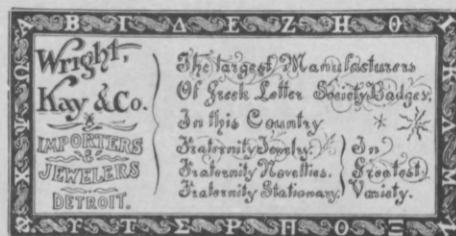 Α Β Γ Δ Ε Ζ Η Θ Ι
Wright,
Kay & Co.
IMPORTERS
&
JEWELERS
DETROIT.
The Largest Manufacturers
Of Greek Letter Society Badges,
In this Country
Fraternity Jewelry.
Fraternity Novelties.
Fraternity Stationary.
In
Greatest
Variety.
Κ Λ Μ Ν
Ξ Ο Π Ρ Σ Τ Υ Φ
Χ Ψ Ω